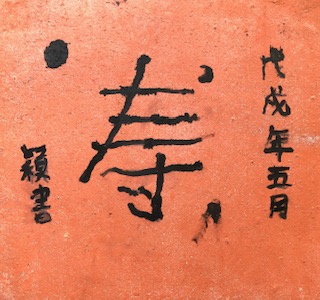 戊戌年五月
寿
穎書